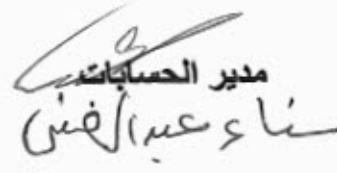 مدير الحسابات
سناء عبد الغنى